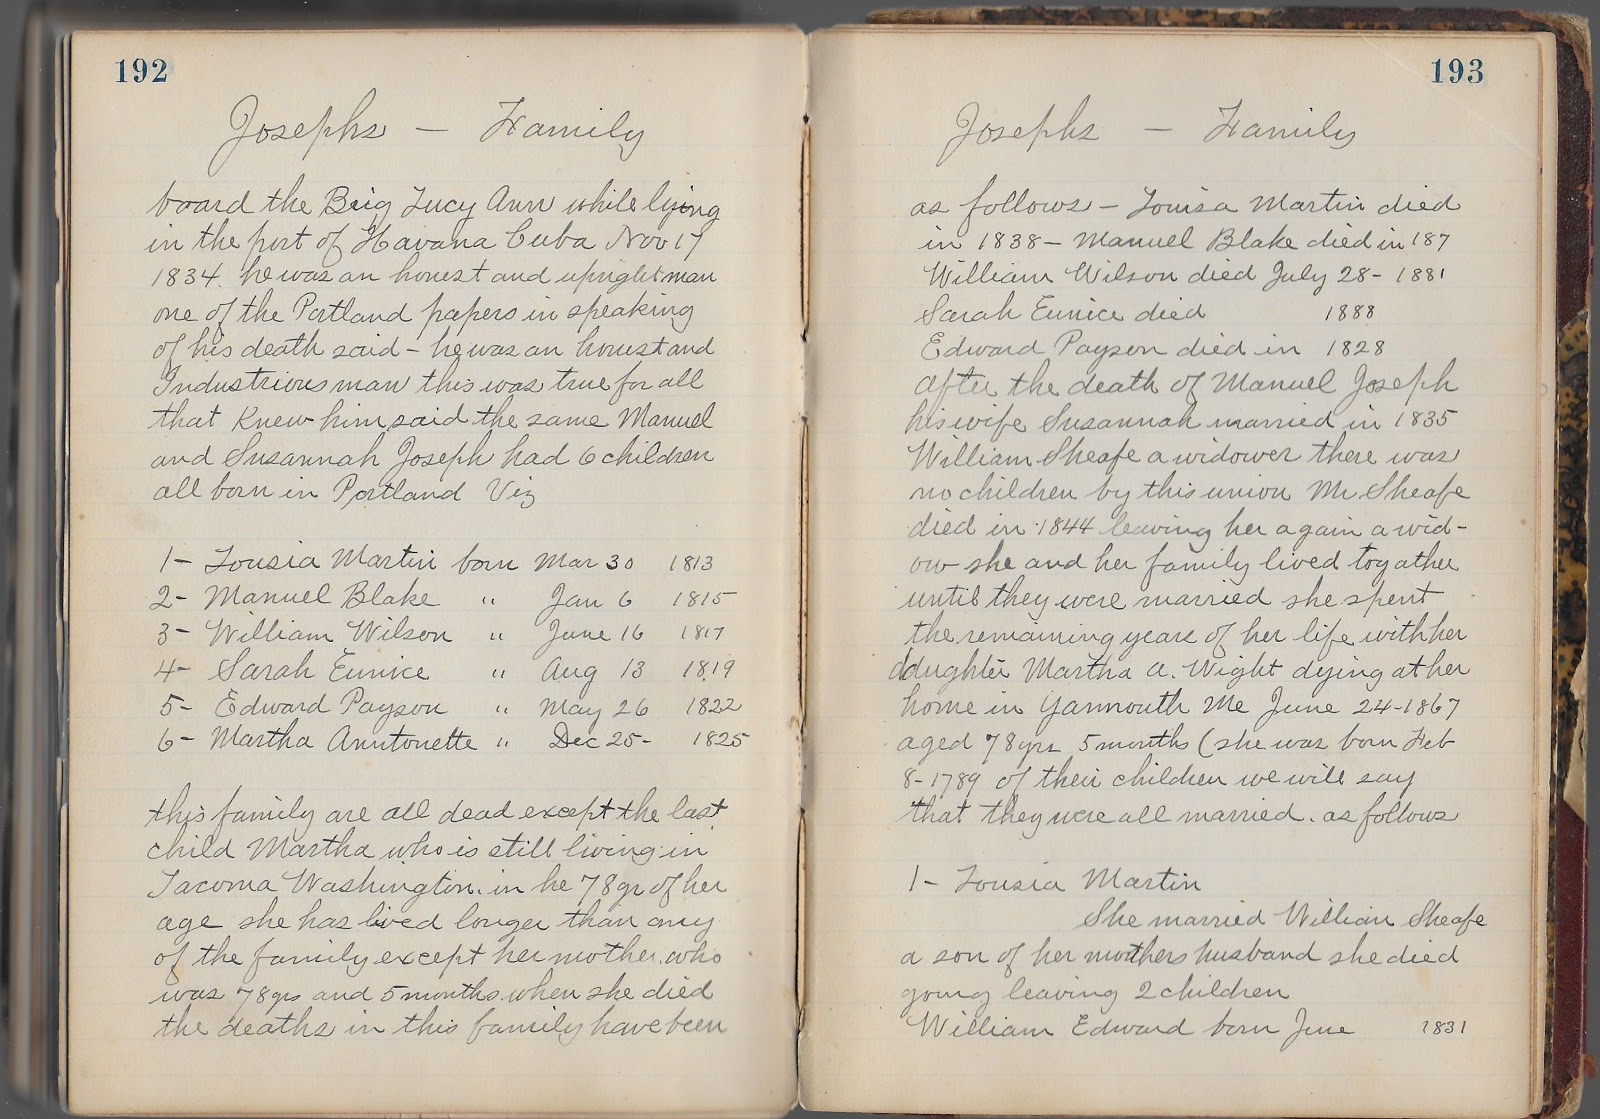 192
Josephs — Family
board the Brig Lucy Ann while lying
in the port of Havana Cuba Nov 17
1834. he was an honest and upright man
one of the Portland papers in speaking
of his death said - he was an honest and
Industrious man this was true for all
that Knew him said the same Manuel
and Susannah Joseph had 6 children
all born in Portland Viz
1- Lousia Martin born Mar 30 1813
2- Manuel Blake " Jan 6 1815
3- William Wilson " June 16 1817
4- Sarah Eunice " Aug 13 1819
5- Edward Payson " May 26 1822
6- Martha Anntonette " Dec 25- 1825
this family are all dead except the last
child Martha who is still living in
Tacoma Washington. in he 78 yr of her
age she has lived longer than any
of the family except her mother. who
was 78 yrs and 5 months when she died
the deaths in this family have been
193
Josephs — Family
as follows - Louisa Martin died
in 1838 - Manuel Blake died in 187
William Wilson died July 28 - 1881
Sarah Eunice died 1888
Edward Payson died in 1828
after the death of Manuel Joseph
his wife Susannah married in 1835
William Sheafe a widower there was
no children by this union Mr Sheafe
died in 1844 leaving her again a wid-
ow she and her family lived togather
until they were married she spent
the remaining years of her life with her
ddughter Martha A. Wight dying at her
home in Yarmouth Me June 24-1867
aged 78 yrs 5 months (she was born Feb
8-1789 of their children we will say
that they were all married. as follows
1- Lousia Martin
She married William Sheafe
a son of her mothers husband she died
yong leaving 2 children
William Edward born June 1831